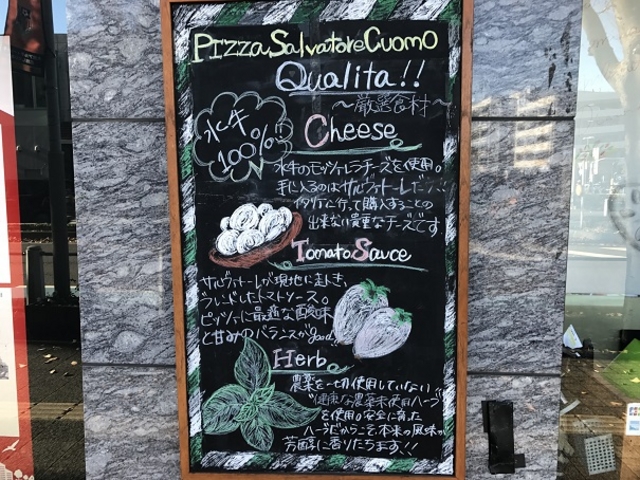 Pizza Salvatore Cuomo
Qualita!!
～厳選食材～
水牛
100%!
Cheese
水牛のモッツァレラチーズを使用。
手に入るのはサルヴァトーレだけ
イタリアに行って購入することの
出来ない貴重なチーズです
Tomato Sauce
サルヴァトーレが現地に赴き、
ブレンドしたトマトソース。
ピッツァに最適な酸味
と甘みのバランスがgood
Herb
農薬を一切使用していない
"健康な農薬未使用ハーブ"
を使用。安全に育った
ハーブだからこそ、本来の風味が
芳醇に香りたちます!!
JCB